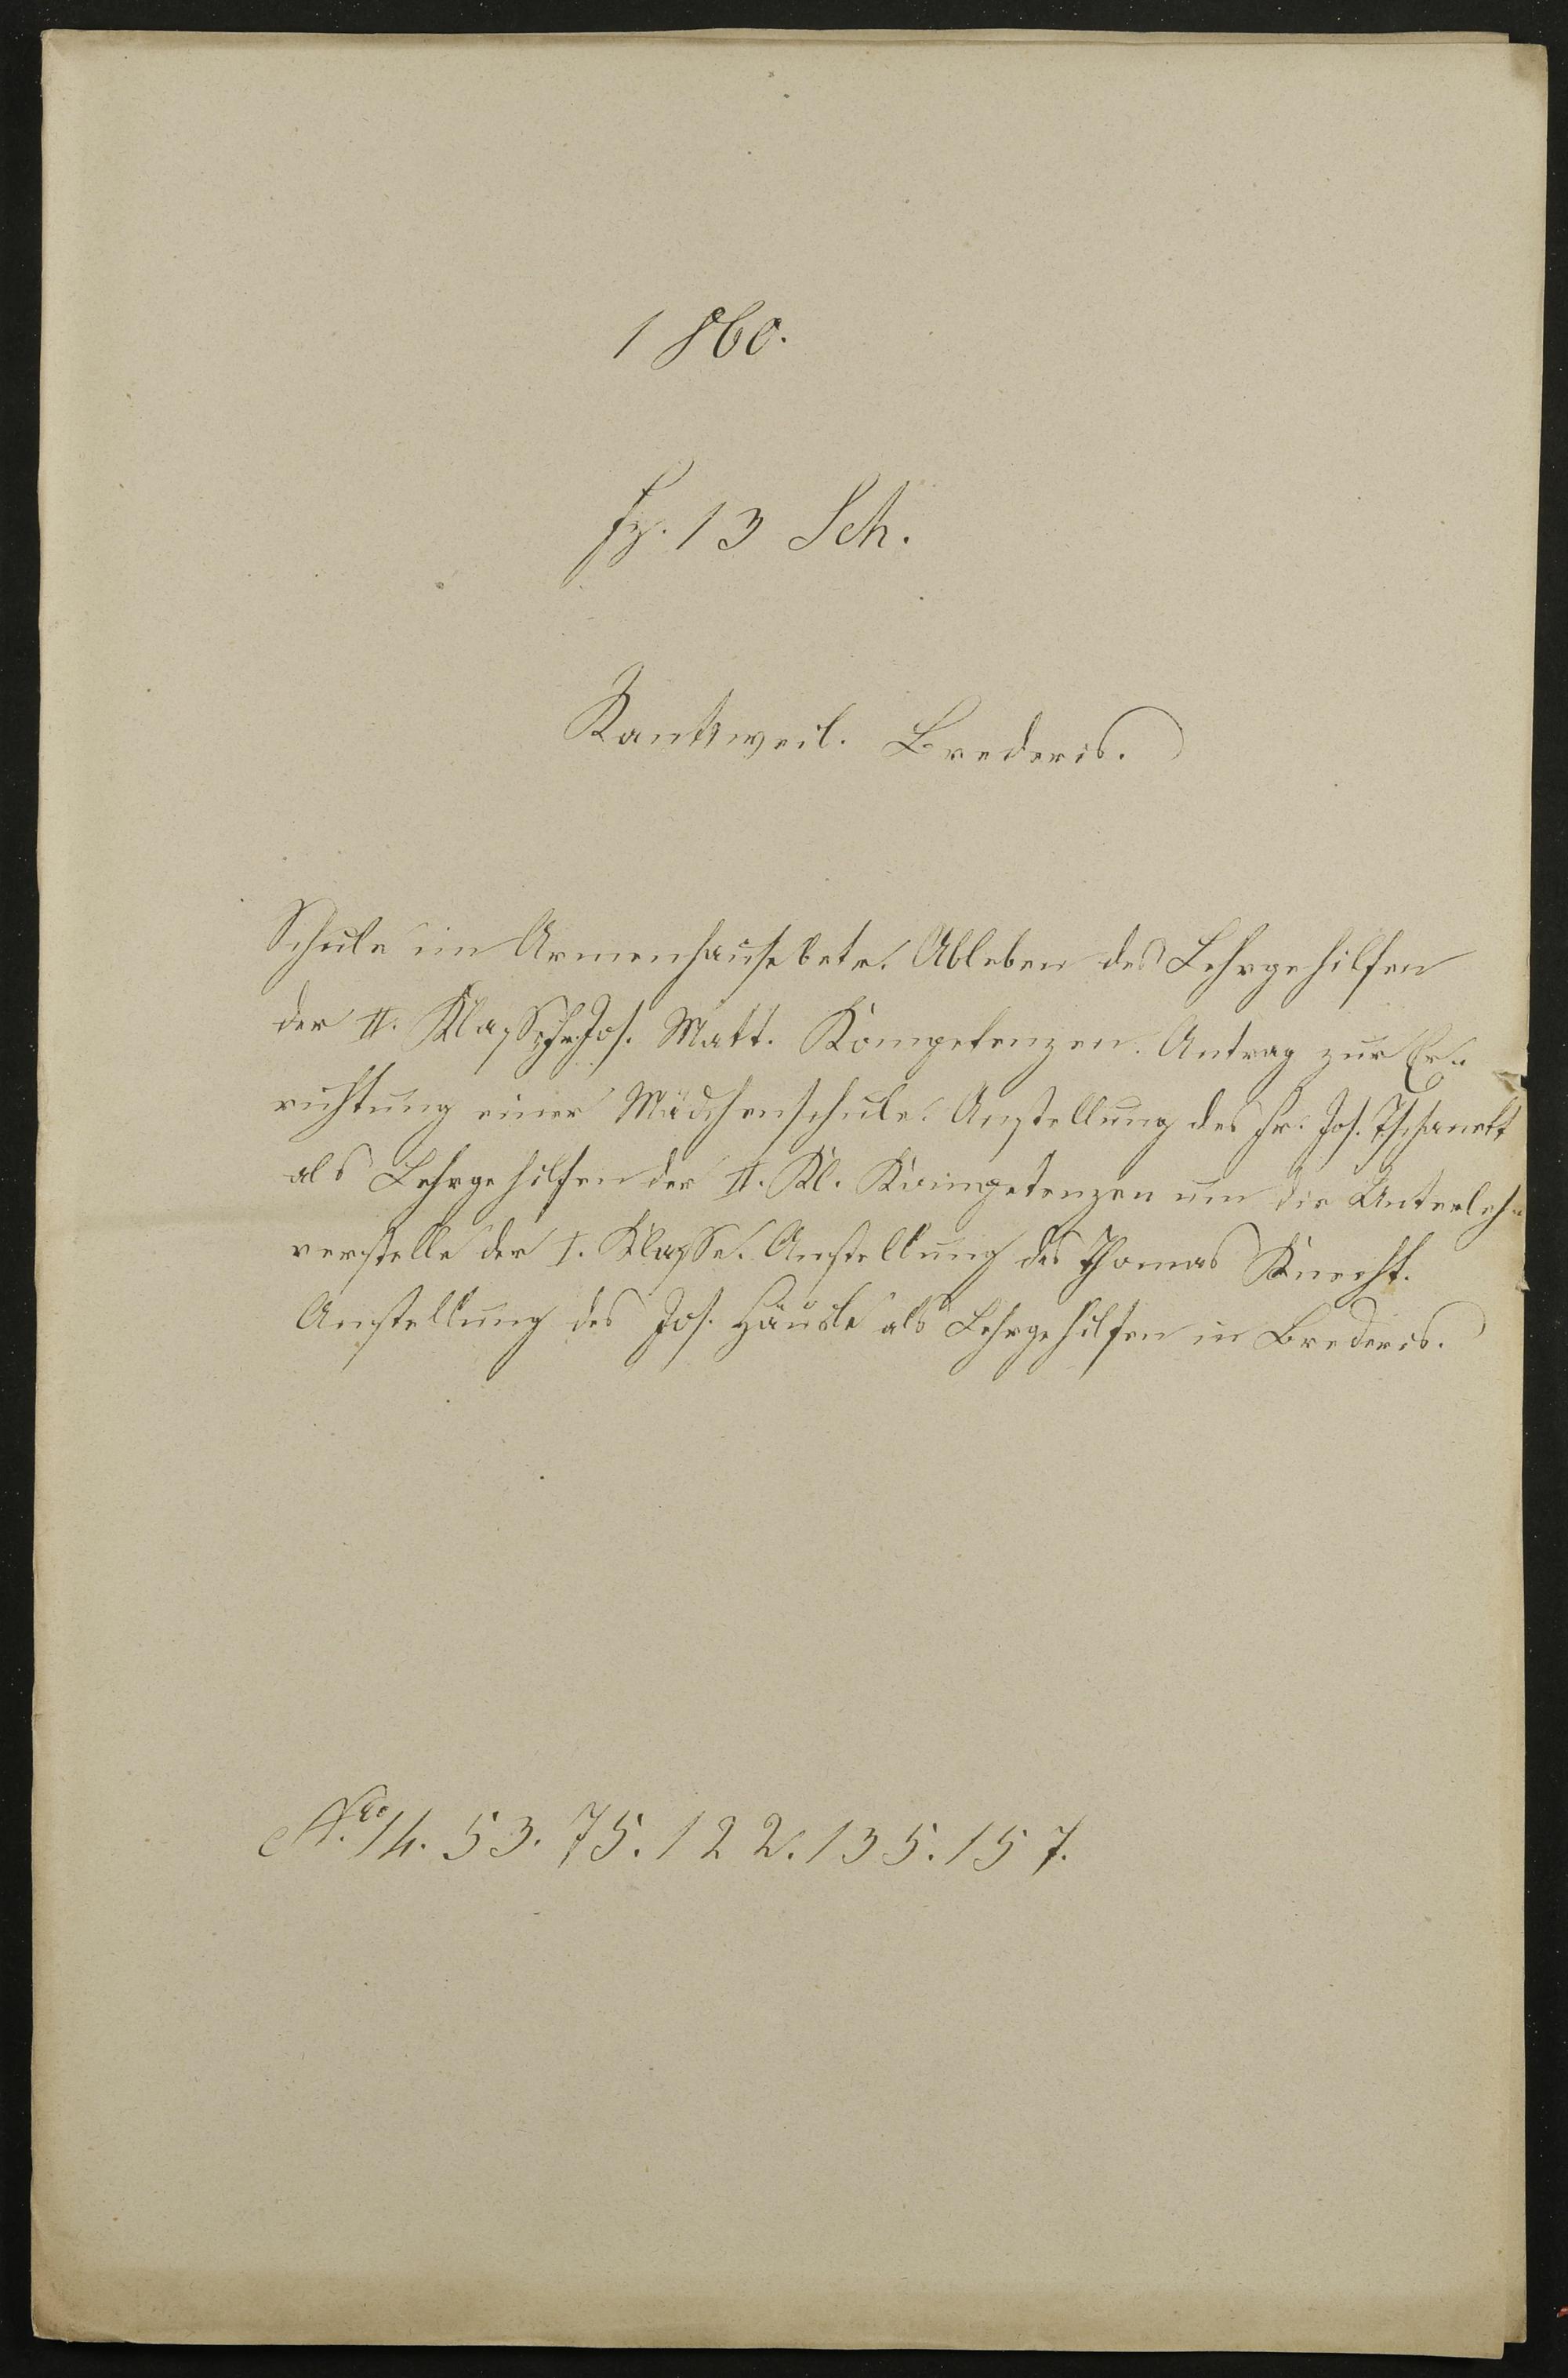 1860.
fz. 13 Sch.
Rankweil. Brederis.
Schule im Armenhause betr. Ableben des Lehrgehilfen
der II. Klasse, Fr. Jos. Matt. Kompetenzen. Antrag zur Er-
richtung einer Mädchenschule. Anstellung des Fr. Jos. Tschanett
als Lehrgehilfen der II. Kl. Kompetenzen um die Unterleh-
rerstelle der I. Klasse. Anstellung des Thomas Knecht.
Anstellung des Jos. Häusle als Lehrgehilfen in Brederis.
No. 14. 53. 75. 122. 135. 157.